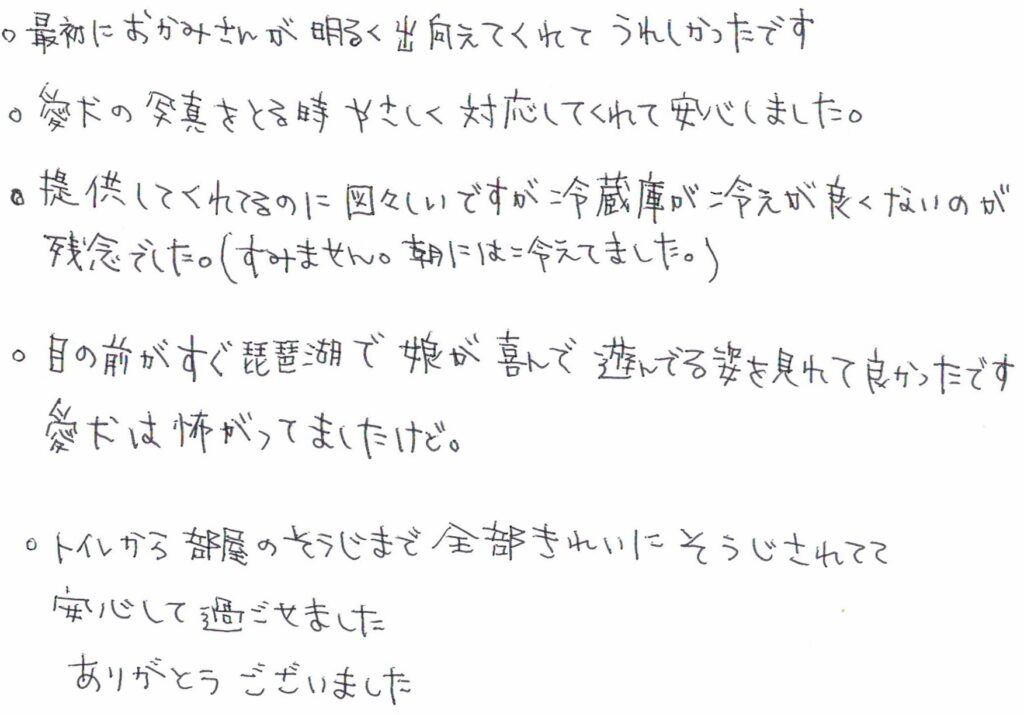 ○最初におかみさんが明るく出向えてくれてうれしかったです
○愛犬の写真をとる時やさしく対応してくれて安心しました。
○提供してくれてるのに図々しいですが冷蔵庫が冷えが良くないのが
残念でした。(すみません。朝には冷えてました。)
○目の前がすぐ琵琶湖で娘が喜んで遊んでる姿を見れて良かったです
愛犬は怖がってましたけど。
○トイレから部屋のそうじまで全部きれいにそうじされてて
安心して過ごせました
ありがとうございました